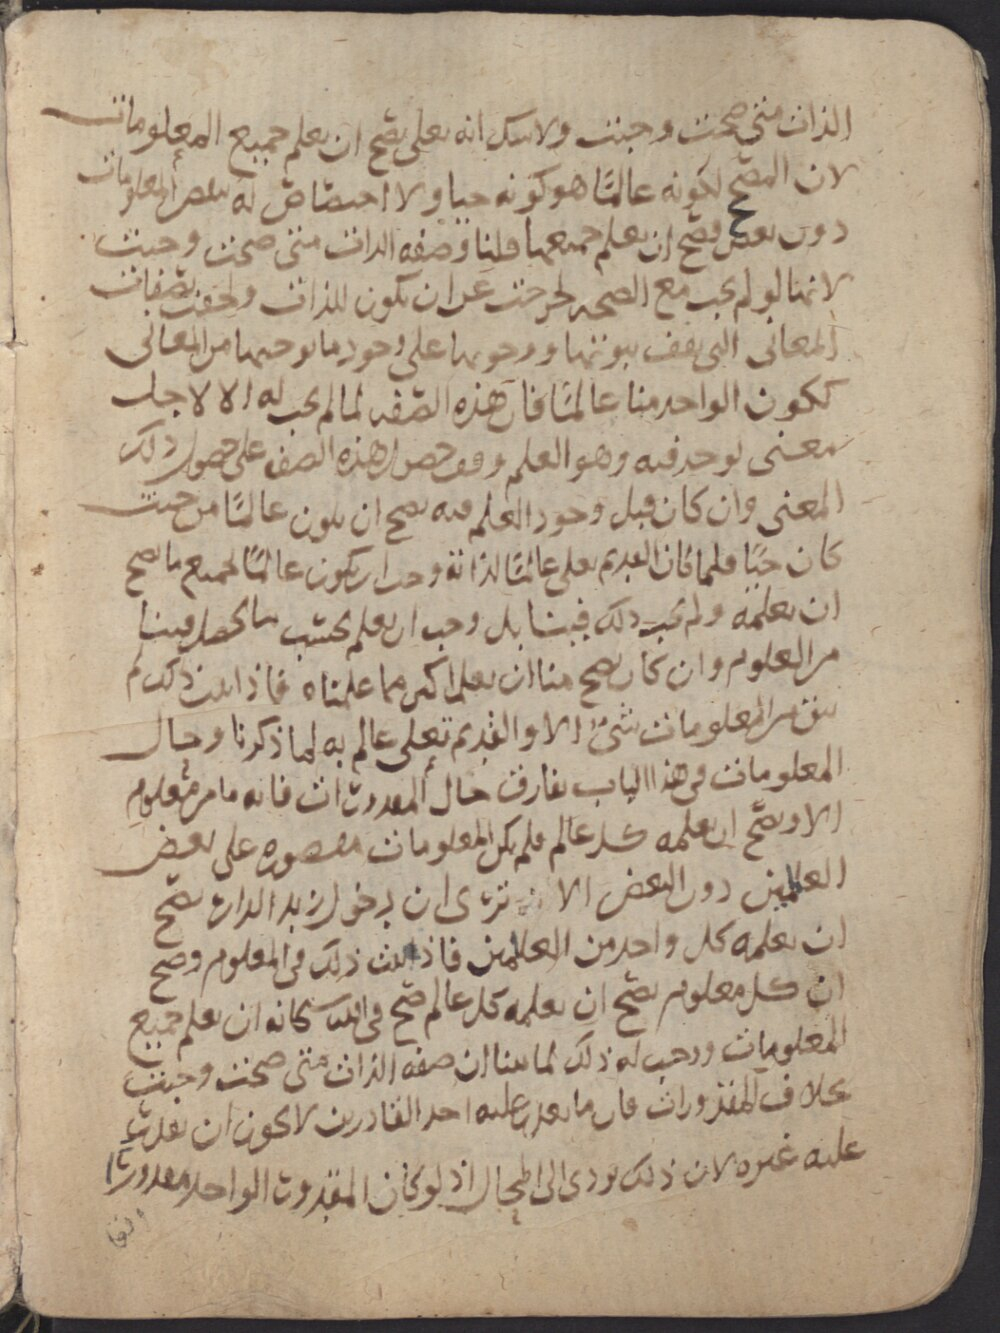 الذات متى صحت وجبت ولا شك انه تعلى يصح ان يعلم جميع المعلومات
لان المصحح لكونه عالمًا هو كونه حيا ولا اختصاص له ببعض المعلومات
دون بعض فصح ان يعلم جميعها قلنا وصفه الذات متى صحت وجبت
لانها لو لم يجب مع الصحه لخرجت عن ان تكون للذات ولحقت بصفات
المعانى التى يقف ثبوتها ووجوبها على وجود ما يوجبها من المعانى
ككون الواحد منا عالمًا فان هذه الصفه لما لم يجب له الا لاجل
معنى يوجد فيه وهو العلم وقف حصول هذه الصفه على حصول ذلك
المعنى وان كان قبل وجود العلم فيه يصح ان يكون عالمًا من حيث
كان حيًا فلما كان القديم تعلى عالمًا لذاته وجب ان يكون عالمًا لجميع ما يصح
ان يعلمه ولم يجب ذلك فينا بل وجب ان يعلم بحسب ما يحصل فينا
من العلوم وان كان يصح منا ان يعلم اكثر مما علمناه فاذا ثبت ذلك لم
يبق من المعلومات شىء الا والقديم تعلى عالم به لما ذكرنا وحال
المعلومات فى هذا الباب يفارق حال المقدورات فانه ما من معلوم
الا ويصح ان يعلمه كل عالم فلم يكن المعلومات مقصوره على بعض
العالمين دون البعض الا ترى ان دخول زيد الدار يصح
ان يعلمه كل واحد من العالمين فاذا ثبت ذلك فى المعلوم وصح
ان كل معلوم يصح ان يعلمه كل عالم صح فى الله سبحانه ان يعلم جميع
المعلومات ووجب له ذلك لما بينا ان صفه الذات متى صحت وجبت
بخلاف المقدورات فان ما يقدر عليه احد القادرين لا يجوز ان يقدر
عليه غيره لان ذلك يودى الى المحال اذ لو كان المقدور الواحد مقدورا